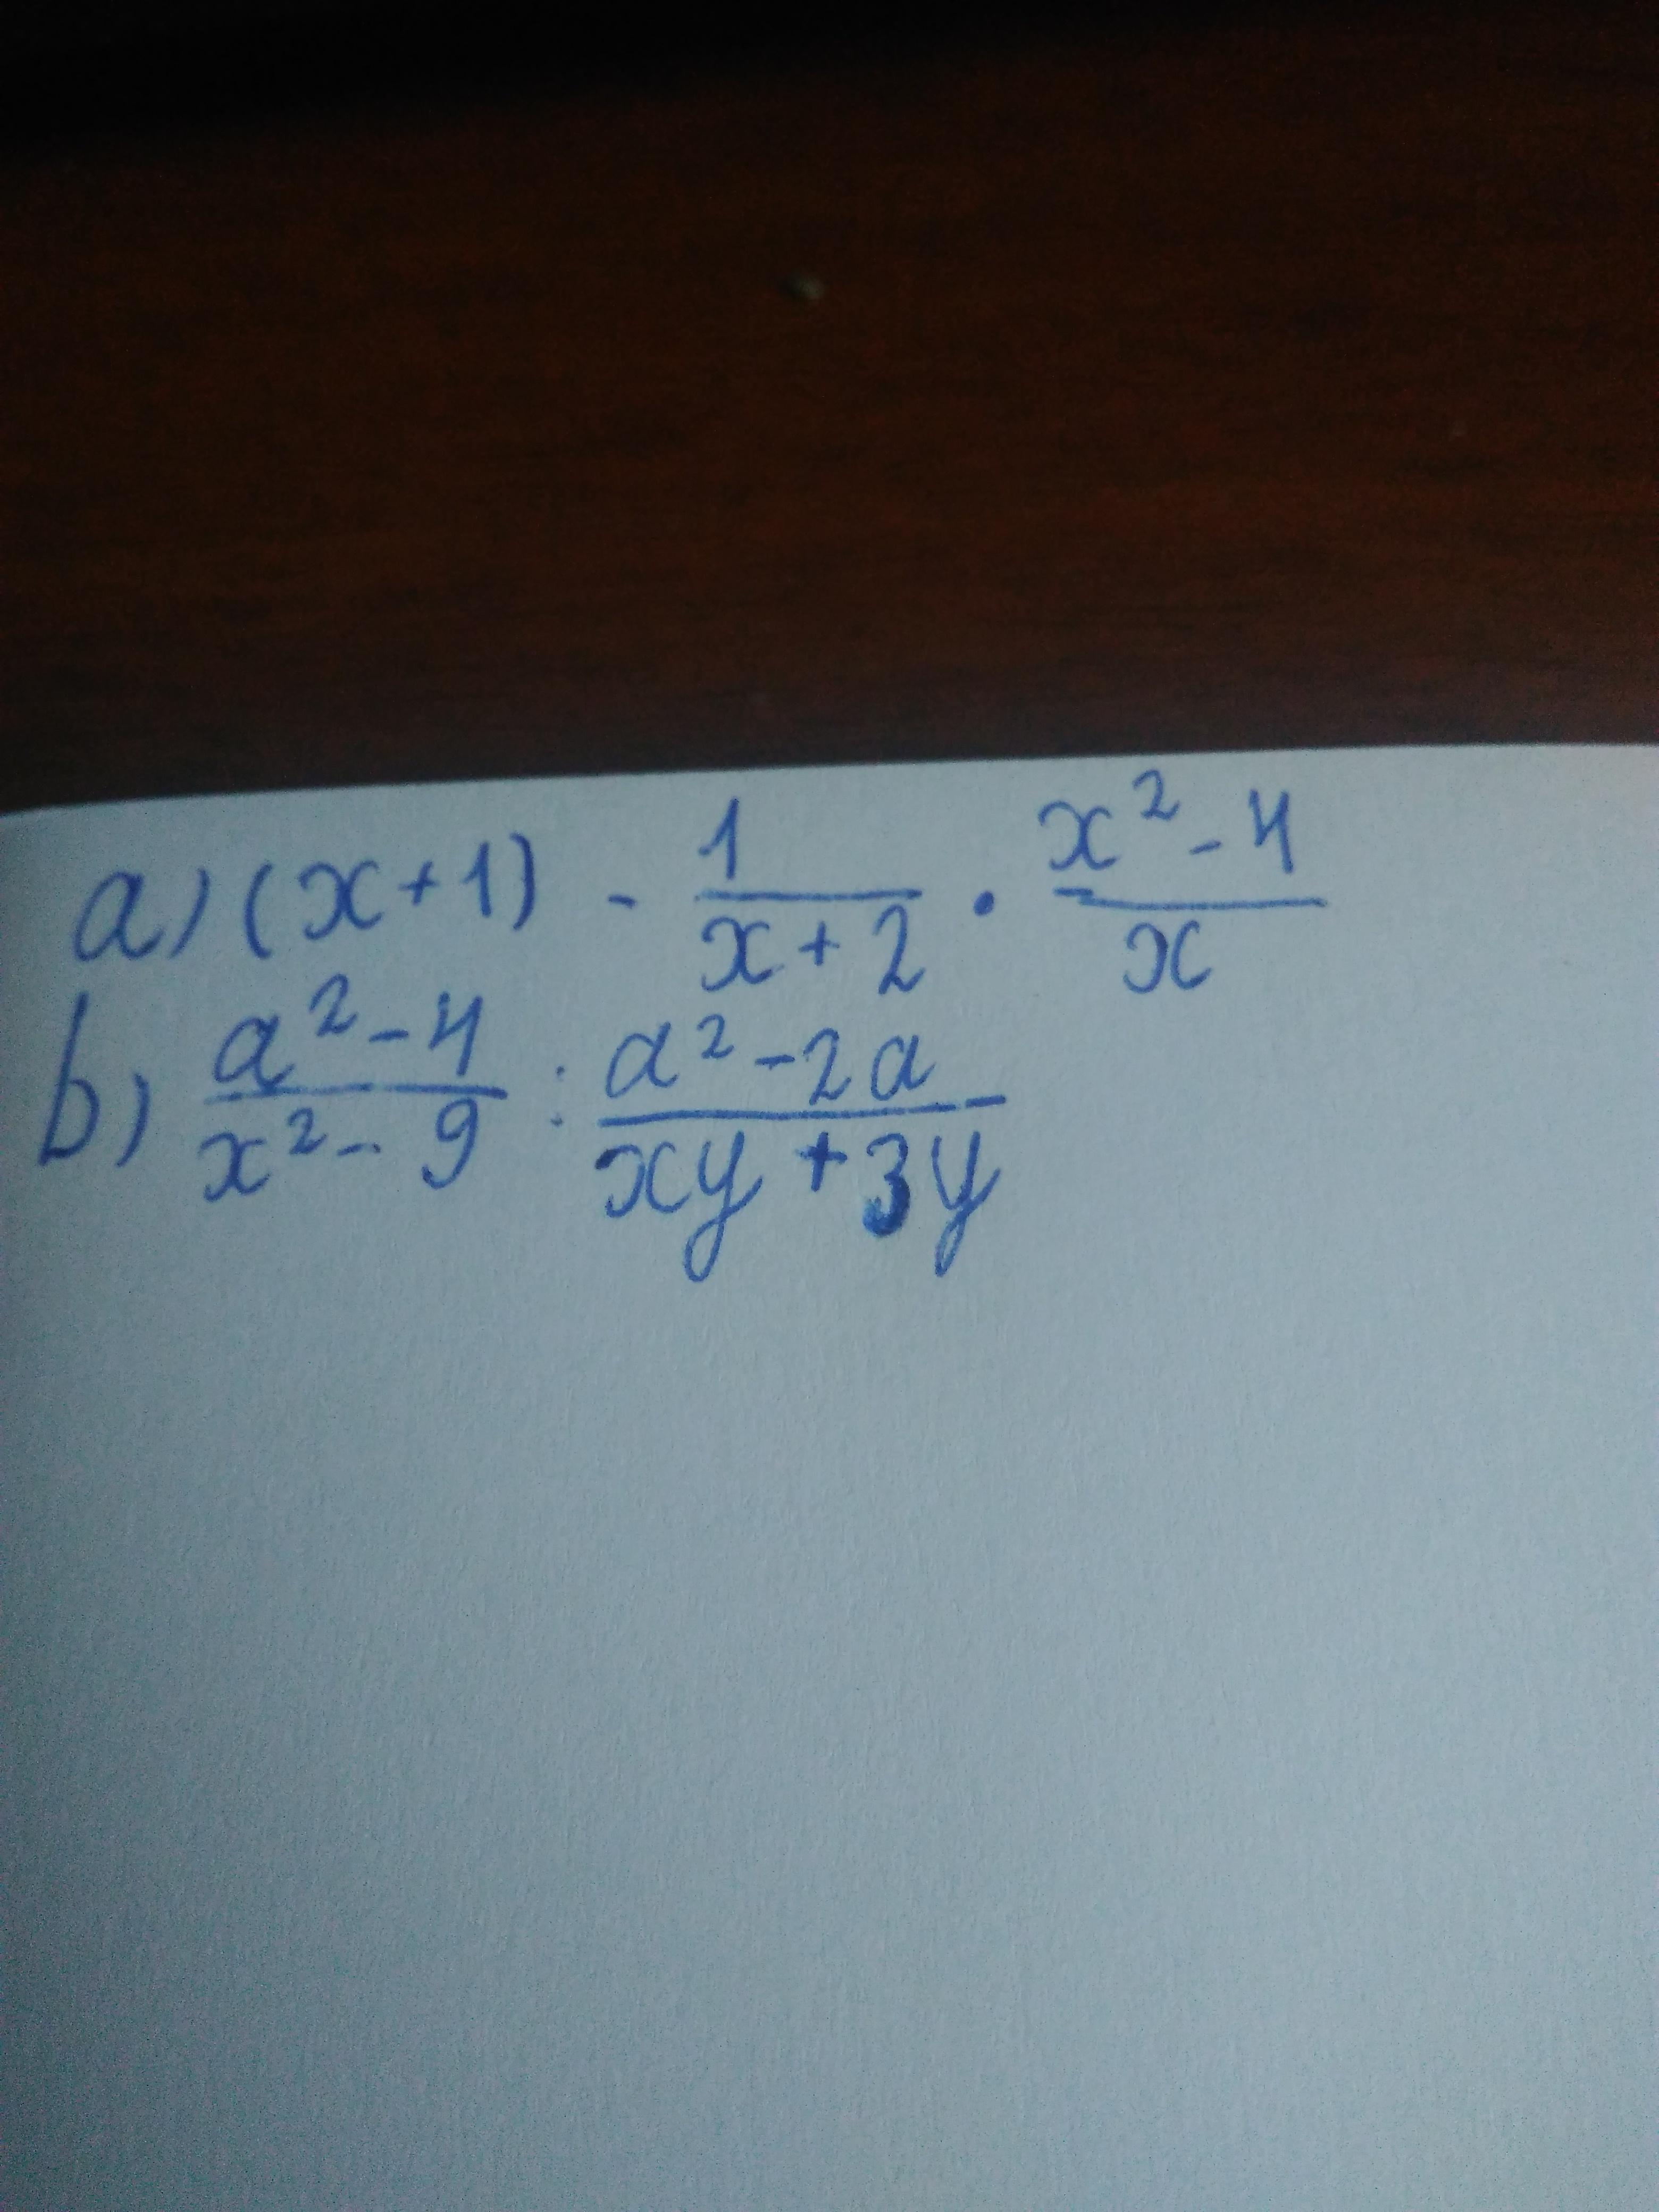 a) (x+1) - \frac{1}{x+2} \cdot \frac{x^2-4}{x}
b) \frac{a^2-4}{x^2-9} : \frac{a^2-2a}{xy+3y}